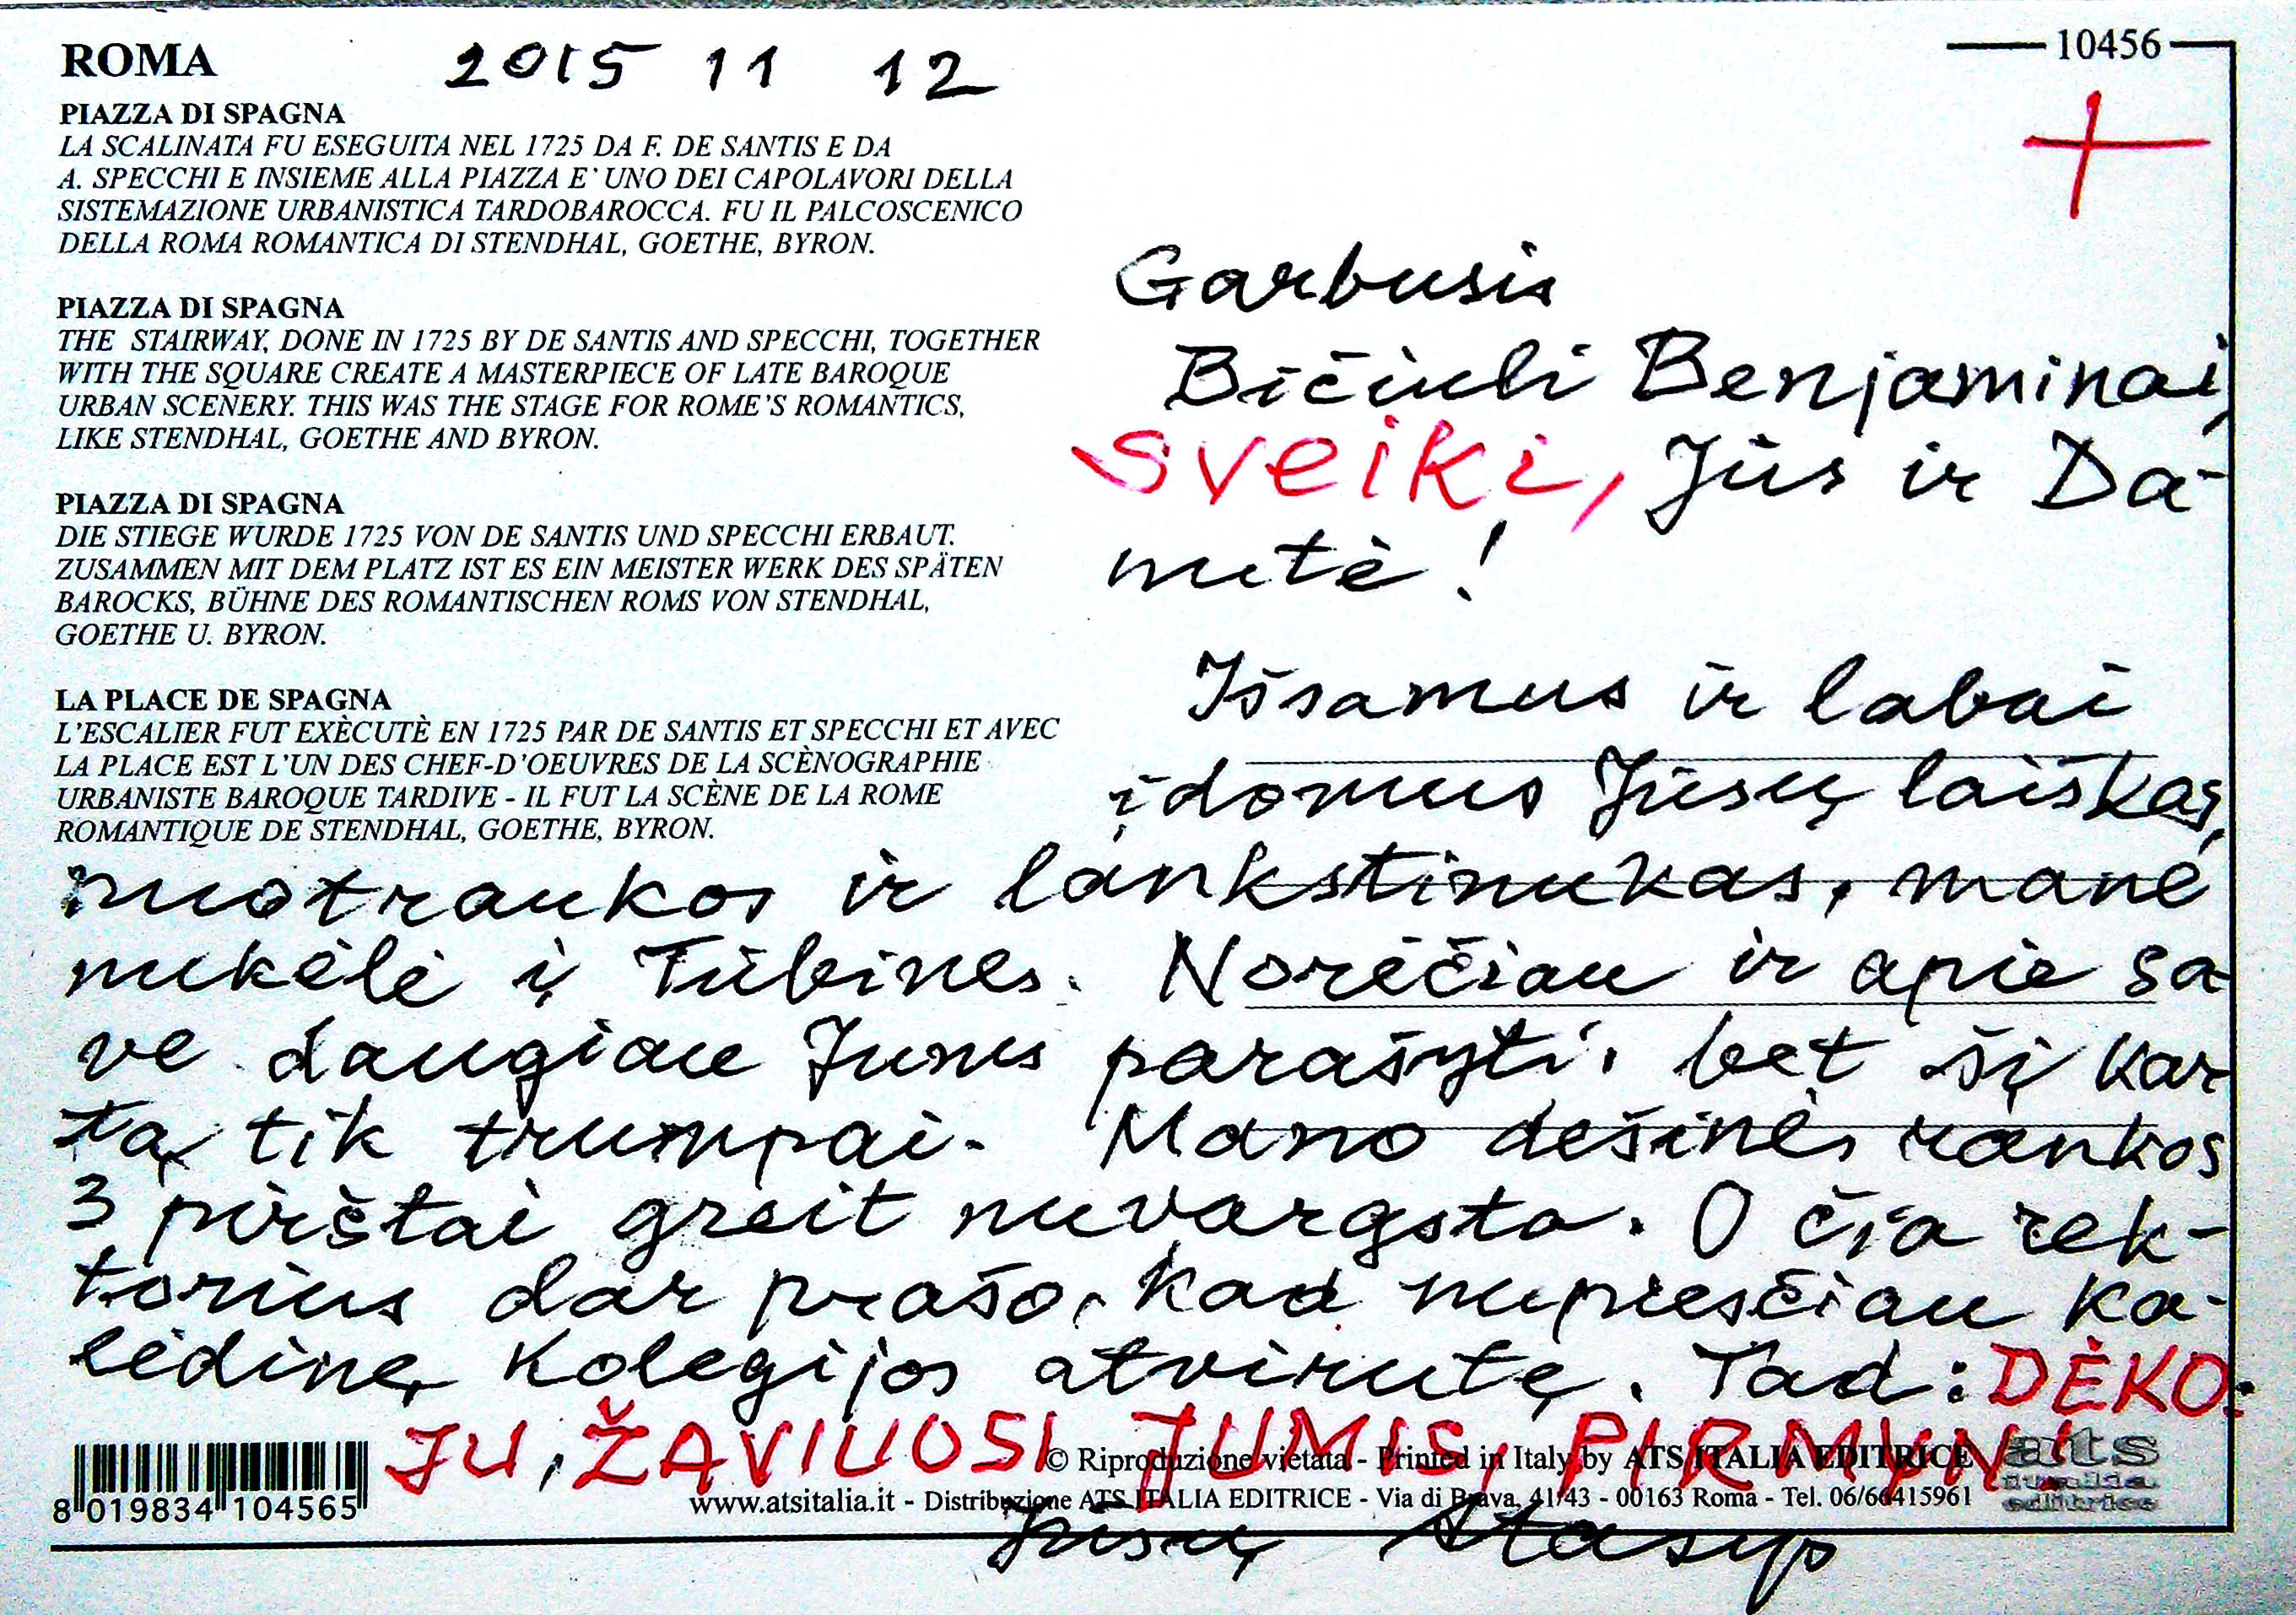 ROMA
2015 11 12
10456
PIAZZA DI SPAGNA
LA SCALINATA FU ESEGUITA NEL 1725 DA F. DE SANTIS E DA
A. SPECCHI E INSIEME ALLA PIAZZA E' UNO DEI CAPOLAVORI DELLA
SISTEMAZIONE URBANISTICA TARDOBAROCCA. FU IL PALCOSCENICO
DELLA ROMA ROMANTICA DI STENDHAL, GOETHE, BYRON.
PIAZZA DI SPAGNA
THE STAIRWAY, DONE IN 1725 BY DE SANTIS AND SPECCHI, TOGETHER
WITH THE SQUARE CREATE A MASTERPIECE OF LATE BAROQUE
URBAN SCENERY. THIS WAS THE STAGE FOR ROME'S ROMANTICS,
LIKE STENDHAL, GOETHE AND BYRON.
PIAZZA DI SPAGNA
DIE STIEGE WURDE 1725 VON DE SANTIS UND SPECCHI ERBAUT.
ZUSAMMEN MIT DEM PLATZ IST ES EIN MEISTER WERK DES SPÄTEN
BAROCKS, BÜHNE DES ROMANTISCHEN ROMS VON STENDHAL,
GOETHE U. BYRON.
LA PLACE DE SPAGNA
L'ESCALIER FUT EXÈCUTÈ EN 1725 PAR DE SANTIS ET SPECCHI ET AVEC
LA PLACE EST L'UN DES CHEF-D'OEUVRES DE LA SCÈNOGRAPHIE
URBANISTE BAROQUE TARDIVE - IL FUT LA SCÈNE DE LA ROME
ROMANTIQUE DE STENDHAL, GOETHE, BYRON.
Garbusis
Bičiuli Benjaminai,
sveiki, Jūs ir Da-
nutė!
Išsamus ir labai
įdomus Jūsų laiškas,
nuotraukos ir lankstinukas, mane
nukėlė į Tūbines. Norėčiau ir apie sa
ve daugiau Jums parašyti, bet šį kar
tą tik trumpai. Mano dešinės rankos
3 pirštai greit nuvargsta. O čia rek-
torius dar prašo, kad nupieščiau ka-
lėdinę kolegijos atvirutę. Tad: DĖKO-
JU, ŽAVIUOSI JUMIS, PIRMYN!
© Riproduzione vietata - Printed in Italy by ATS ITALIA EDITRICE
ats
italia
editrice
8 019834 104565
www.atsitalia.it - Distribuzione ATS ITALIA EDITRICE - Via di Brava, 41/43 - 00163 Roma - Tel. 06/66415961
Jūsų